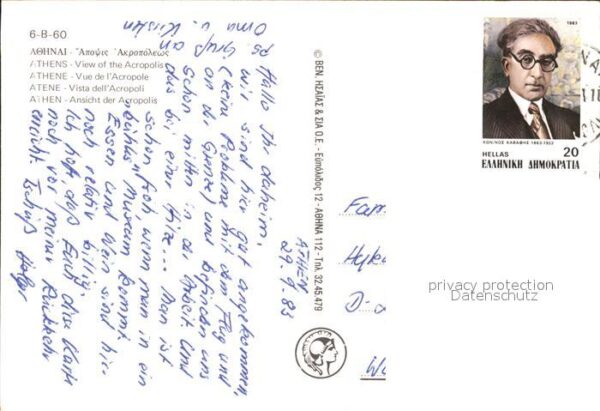 6-8-60
ΑΘΗΝΑΙ - Ἄποψις Ἀκροπόλεως
ATHENS - View of the Acropolis
ATHENE - Vue de l'Acropole
ATENE - Vista dell'Acropoli
ATHEN - Ansicht der Acropolis
ATHEN
29.9.83
Hallo Ihr daheim,
wir sind hier gut angekommen,
(keine Probleme mit dem Flug und
an der Grenze) und befinden uns
schon mitten in der Arbeit. Und
das bei einer Hitze... Man ist
schon froh, wenn man in ein
kühles Museum kommt.
Essen und Wein sind hier
noch relativ billig.
Ich hoffe, daß Euch diese Karte
noch vor meiner Rückkehr
erreicht. Tschüß Holger
ps. Gruß an
Oma u. Kirsten
© ΒΕΝ. ΗΣΑΪΑΣ & ΣΙΑ Ο.Ε. - Ευπόλιδος 12 - ΑΘΗΝΑ 112 - Τηλ. 32.45.479
Fam.
D-
1983
ΚΩΝ/ΝΟΣ ΚΑΒΑΦΗΣ 1863-1933
HELLAS 20
ΕΛΛΗΝΙΚΗ ΔΗΜΟΚΡΑΤΙΑ
privacy protection
Datenschutz